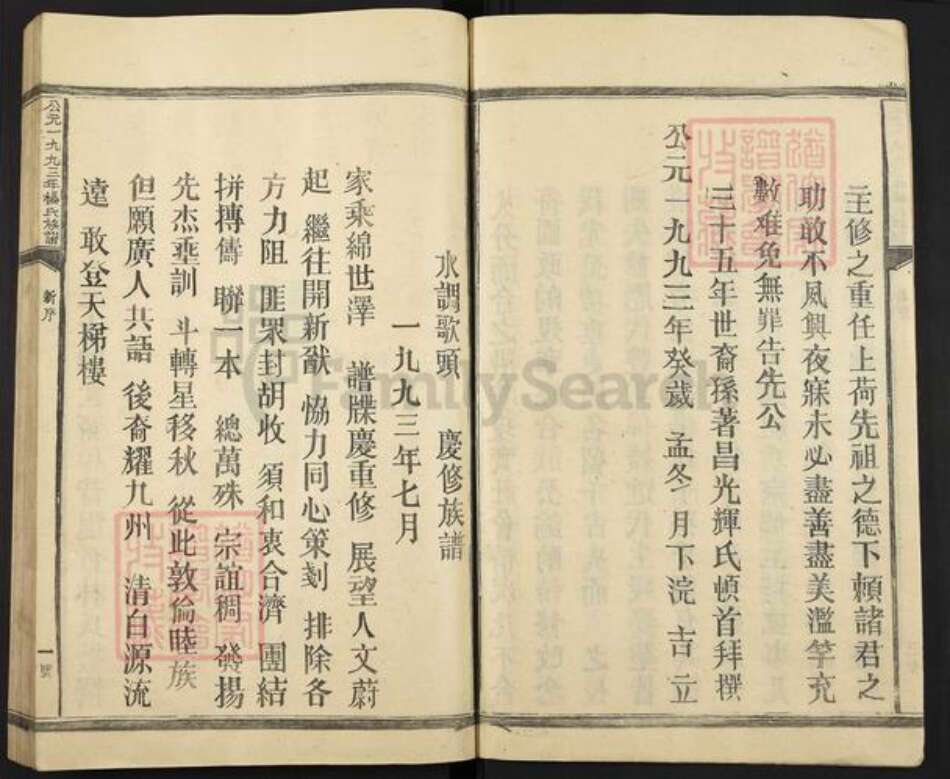 主修之重任上荷先祖之德下賴諸君之
助敢不夙興夜寐未必盡善盡美濫竽充
數难免無罪告先公
三十五年世裔孫著昌光輝氏頓首拜撰
公元一九九三年癸歲孟冬月下浣吉立
水調歌頭 慶修族譜
一九九三年七月
家乘綿世澤 譜牒慶重修 展望人文蔚
起 繼往開新猷 恊力同心策劃 排除各
方力阻 匪眾封胡收 須和衷合濟 團結
拼摶儔 聯一本 總萬殊 宗誼稠 發揚
先杰垂訓 斗轉星移秋 從此敦倫睦族
但願廣人共語 後裔耀九州 清白源流
遠 敢登天梯樓
公元一九九三年楊氏族譜
新序
一號
FamilySearch